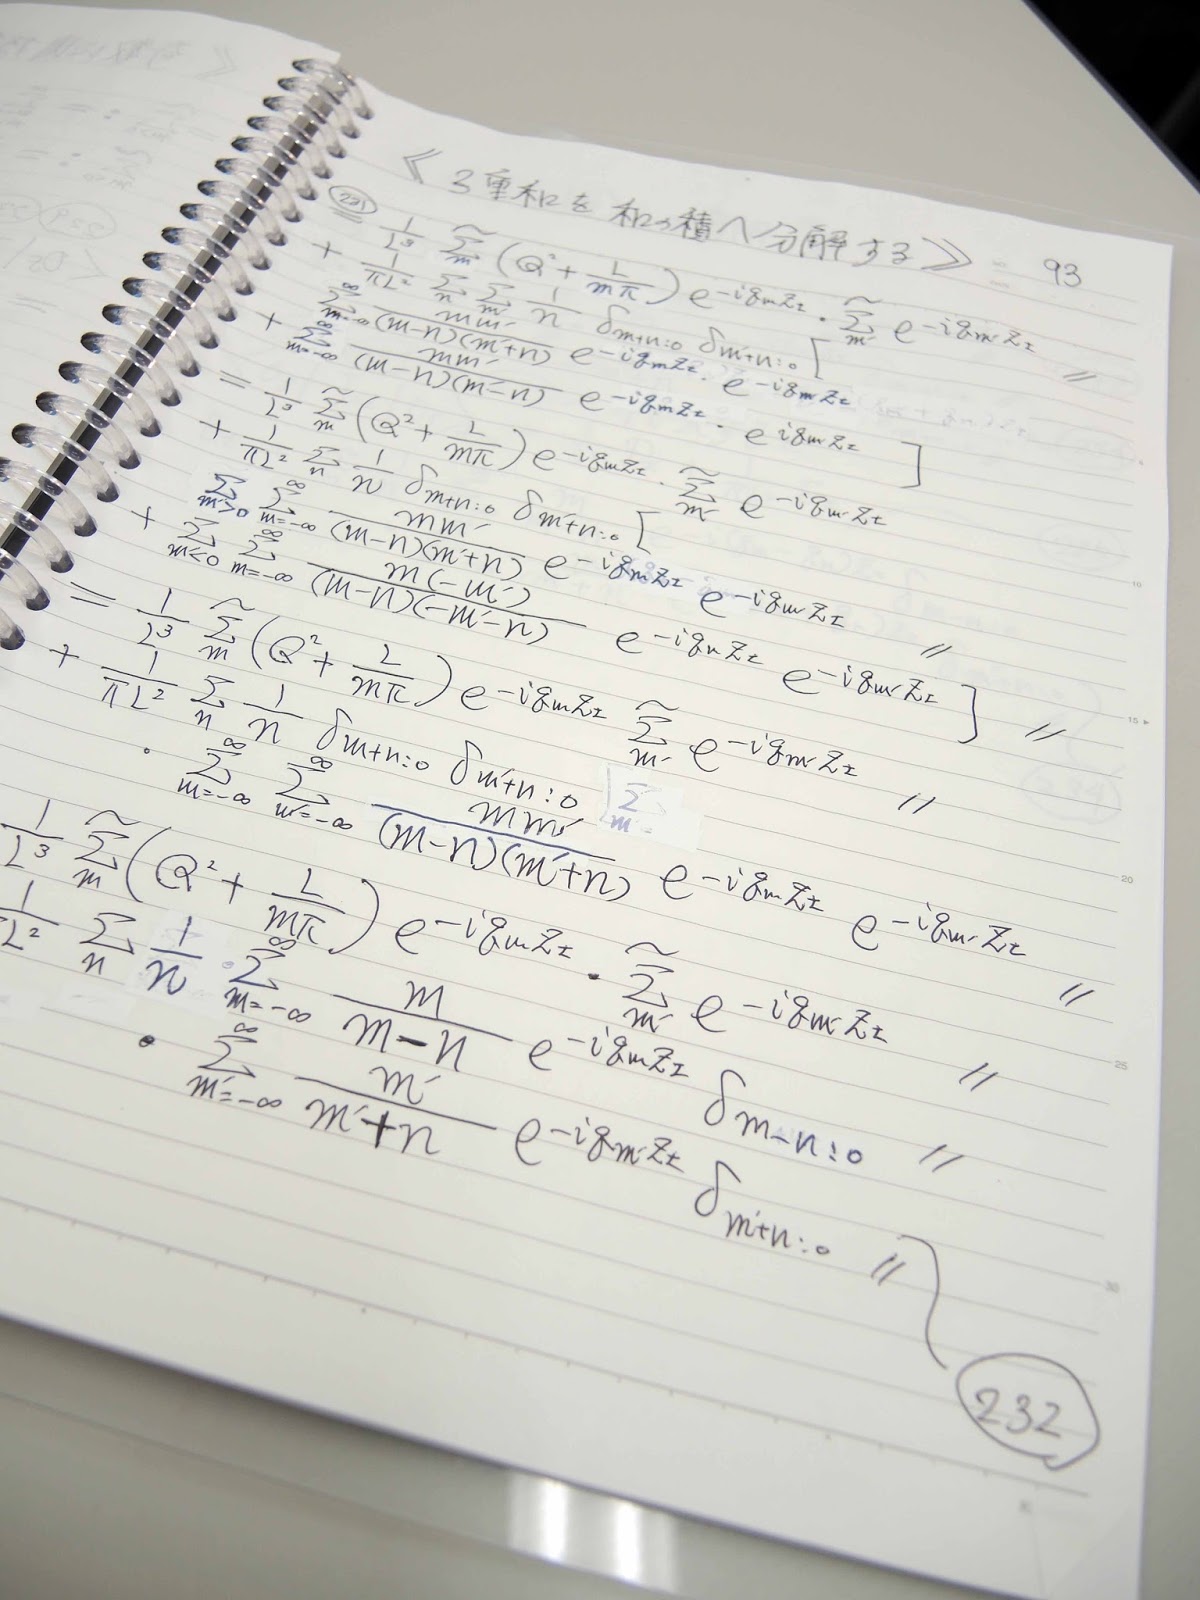 《3重和を和の積へ分解する》 93
(231) 1/L³ Σ̃_m (Q² + L/mπ) e^{-iq_m z_I} · Σ̃_m' e^{-iq_m' z_I} 〃
+ 1/πL² Σ_n Σ_m' 1/n δ_{m+n:0} δ_{m'+n:0} [
Σ_{m=-∞}^∞ mm'/(m-n)(m'+n) e^{-iq_m z_I} · e^{-iq_m' z_I}
+ Σ_{m=-∞}^∞ mm'/(m-n)(m'-n) e^{-iq_m z_I} · e^{iq_m' z_I} ]
= 1/L³ Σ̃_m (Q² + L/mπ) e^{-iq_m z_I} · Σ̃_m' e^{-iq_m' z_I}
+ 1/πL² Σ_n 1/n δ_{m+n:0} δ_{m'+n:0} [
Σ_{m'>0} Σ_{m=-∞}^∞ mm'/(m-n)(m'+n) e^{-iq_m z_I} e^{-iq_m' z_I} 〃
+ Σ_{m'<0} Σ_{m=-∞}^∞ m(-m')/(m-n)(-m'-n) e^{-iq_m z_I} e^{-iq_m' z_I} ] 〃
= 1/L³ Σ̃_m (Q² + L/mπ) e^{-iq_m z_I} Σ̃_m' e^{-iq_m' z_I} 〃
+ 1/πL² Σ_n 1/n δ_{m+n:0} δ_{m'+n:0}
· Σ_{m=-∞}^∞ Σ_{m'=-∞}^∞ mm'/(m-n)(m'+n) e^{-iq_m z_I} e^{-iq_m' z_I} 〃
1/L³ Σ̃_m (Q² + L/mπ) e^{-iq_m z_I} · Σ̃_m' e^{-iq_m' z_I} 〃
1/L² Σ_n 1/n · Σ_{m=-∞}^∞ m/m-n e^{-iq_m z_I} δ_{m-n:0} 〃
· Σ_{m'=-∞}^∞ m'/m'+n e^{-iq_m' z_I} δ_{m'+n:0} 〃
232